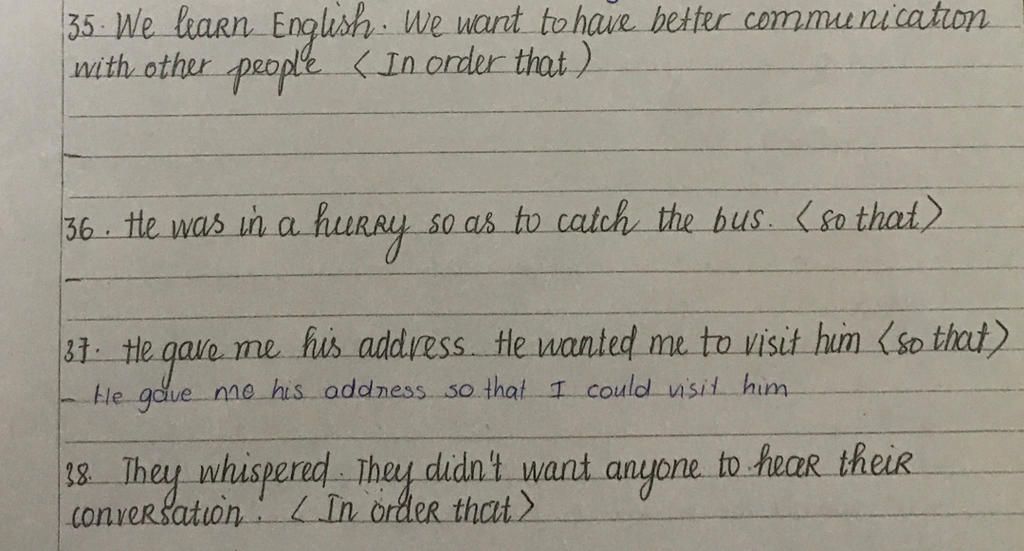 35. We learn English. We want to have better communication
with other people < In order that )
36. He was in a hurry so as to catch the bus. < so that >
37. He gave me his address. He wanted me to visit him < so that >
- He gave me his address so that I could visit him
38. They whispered. They didn't want anyone to hear their
conversation. < In order that >